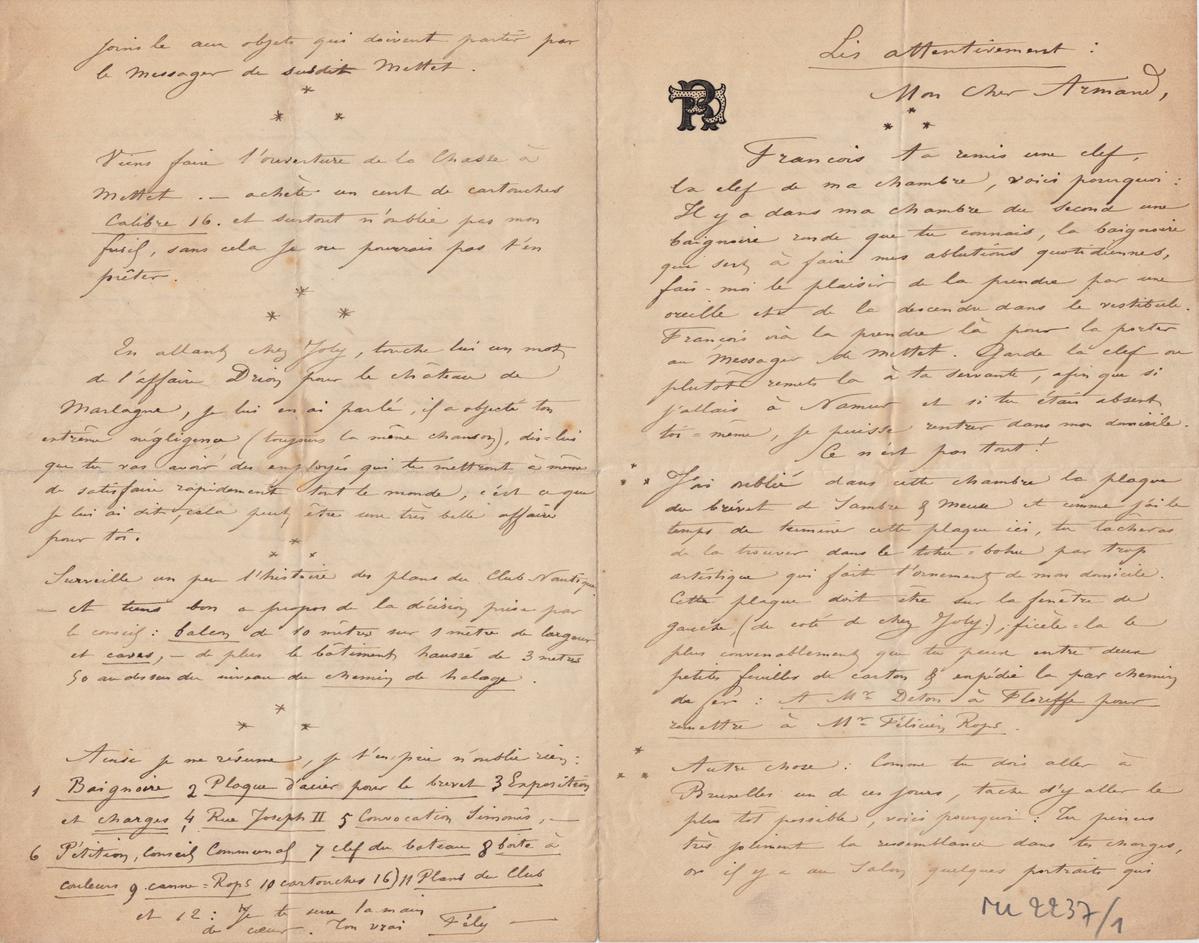 Lis attentivement :
Mon cher Armand,
François t'a remis une clef,
la clef de ma chambre, voici pourquoi :
Il y a dans ma chambre du second une
baignoire ronde que tu connais, la baignoire
qui sert à faire mes ablutions quotidiennes,
fais-moi le plaisir de la prendre par une
oreille et de la descendre dans le vestibule.
François ira la prendre là pour la porter
au Messager de Mettet. Garde la clef ou
plutôt remets la à ta servante, afin que si
j'allais à Namur et si tu étais absent
toi-même, je puisse rentrer dans mon domicile.
Ce n'est pas tout !
J'ai oublié dans cette chambre la plaque
du brévet de Sambre & Meuse et comme j'ai le
temps de terminer cette plaque ici, tu tacheras
de la trouver dans le tohu=bohu par trop
artistique qui fait l'ornement de mon domicile.
Cette plaque doit être sur la fenêtre de
gauche, (du coté de chez Joly), ficèle-la le
plus convenablement que tu peux entre deux
petites feuilles de carton & expédie la par chemin
de fer : A Mr Deton à Floreffe pour
remettre à Mr Félicien Rops.
Autre chose : Comme tu dois aller à
Bruxelles un de ces jours, tâche d'y aller le
plus tot possible, voici pourquoi : Tu peins
très joliment la ressemblance dans tes charges,
or il y a au Salon quelques portraits qui
MU 2237/1
joins le aux objets qui doivent partir par
le Messager de susdit Mettet.
Viens faire l'ouverture de la Chasse à
Mettet. — achète un cent de cartouches
Calibre 16. et surtout n'oublie pas mon
fusil, sans cela je ne pourrais pas t'en
prêter.
En allant chez Joly, touche lui un mot
de l'affaire Drion pour le chateau de
Marlagne, je lui en ai parlé, il a objecté ton
extrême négligence (toujours la même chanson), dis-lui
que tu vas avoir des employés qui te mettront à même
de satisfaire rapidement tout le monde, c'est ce que
je lui ai dit, cela peut être une très belle affaire
pour toi.
Surveille un peu l'histoire des plans du Club-Nautique
— et tiens bon a propos de la décision prise par
le conseil : balcon de 10 mètres sur 1 mètre de largeur
et caves, — de plus le bâtiment haussé de 3 metres
50 au dessus du niveau du chemin de halage.
Ainsi je me résume, je t'en prie n'oublie rien :
1 Baignoire 2 Plaque d'acier pour le brevet 3 Exposition
et charges 4, Rue Joseph II 5 Convocation Simonis, —
6 Pétition, Conseil Communal 7 clef du bateau 8 boite à
couleurs 9. canne=Rops 10 cartouches 16) 11 Plans du Club
et 12 : Je te serre la main
de cœur. Ton vrai Fély —